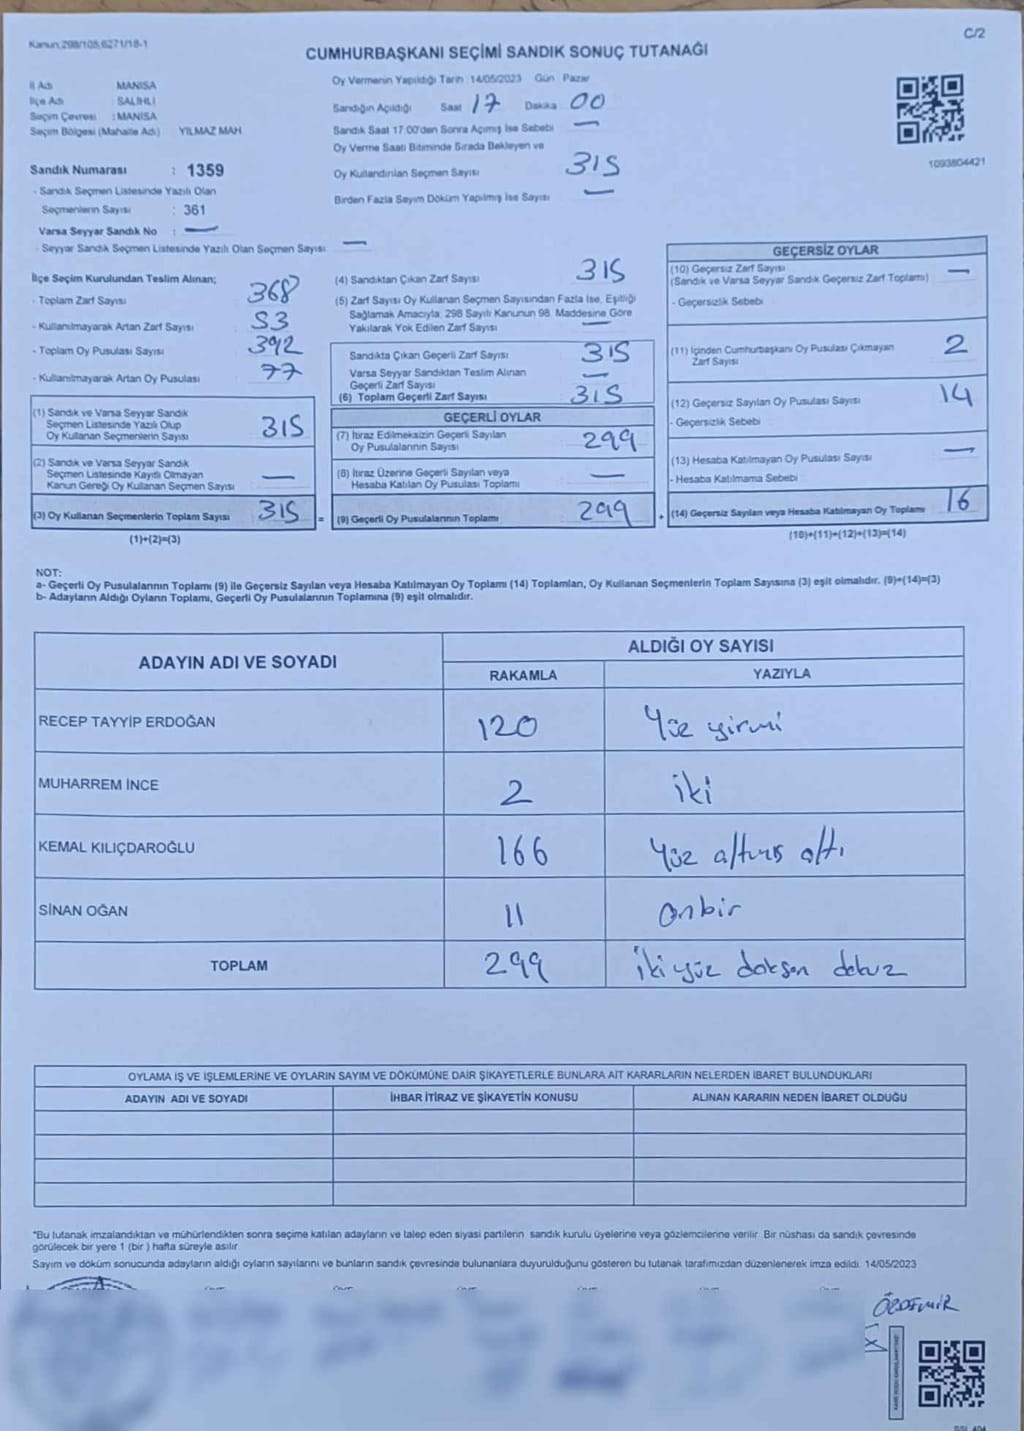 Kanun;298/105,6271/18-1
C/2
CUMHURBAŞKANI SEÇİMİ SANDIK SONUÇ TUTANAĞI
İl Adı MANİSA
İlçe Adı : SALİHLİ
Seçim Çevresi : MANİSA
Seçim Bölgesi (Mahalle Adı) YILMAZ MAH.
Sandık Numarası : 1359
- Sandık Seçmen Listesinde Yazılı Olan
Seçmenlerin Sayısı : 361
Varsa Seyyar Sandık No : —
- Seyyar Sandık Seçmen Listesinde Yazılı Olan Seçmen Sayısı: —
Oy Vermenin Yapıldığı Tarih :14/05/2023 Gün : Pazar
Sandığın Açıldığı Saat 17 Dakika 00
Sandık Saat 17:00'den Sonra Açımış İse Sebebi —
Oy Verme Saati Bitiminde Sırada Bekleyen ve
Oy Kullandırılan Seçmen Sayısı 315
Birden Fazla Sayım Döküm Yapılmış İse Sayısı —
1093804421
İlçe Seçim Kurulundan Teslim Alınan;
- Toplam Zarf Sayısı 368
- Kullanılmayarak Artan Zarf Sayısı 53
- Toplam Oy Pusulası Sayısı 392
- Kullanılmayarak Artan Oy Pusulası 77
(1) Sandık ve Varsa Seyyar Sandık
Seçmen Listesinde Yazılı Olup
Oy Kullanan Seçmenlerin Sayısı 315
(2) Sandık ve Varsa Seyyar Sandık
Seçmen Listesinde Kayıtlı Olmayan
Kanun Gereği Oy Kullanan Seçmen Sayısı —
(3) Oy Kullanan Seçmenlerin Toplam Sayısı 315 =
(1)+(2)=(3)
(4) Sandıktan Çıkan Zarf Sayısı 315
(5) Zarf Sayısı Oy Kullanan Seçmen Sayısından Fazla İse, Eşitliği
Sağlamak Amacıyla, 298 Sayılı Kanunun 98. Maddesine Göre
Yakılarak Yok Edilen Zarf Sayısı —
Sandıkta Çıkan Geçerli Zarf Sayısı 315
Varsa Seyyar Sandıktan Teslim Alınan
Geçerli Zarf Sayısı —
(6) Toplam Geçerli Zarf Sayısı 315
GEÇERLİ OYLAR
(7) İtiraz Edilmeksizin Geçerli Sayılan
Oy Pusulalarının Sayısı 299
(8) İtiraz Üzerine Geçerli Sayılan veya
Hesaba Katılan Oy Pusulası Toplamı —
(9) Geçerli Oy Pusulalarının Toplamı 299 +
GEÇERSİZ OYLAR
(10) Geçersiz Zarf Sayısı
(Sandık ve Varsa Seyyar Sandık Geçersiz Zarf Toplamı) —
- Geçersizlik Sebebi
(11) İçinden Cumhurbaşkanı Oy Pusulası Çıkmayan
Zarf Sayısı 2
(12) Geçersiz Sayılan Oy Pusulası Sayısı 14
- Geçersizlik Sebebi
(13) Hesaba Katılmayan Oy Pusulası Sayısı —
- Hesaba Katılmama Sebebi
(14) Geçersiz Sayılan veya Hesaba Katılmayan Oy Toplamı 16
(10)+(11)+(12)+(13)=(14)
NOT:
a- Geçerli Oy Pusulalarının Toplamı (9) ile Geçersiz Sayılan veya Hesaba Katılmayan Oy Toplamı (14) Toplamları, Oy Kullanan Seçmenlerin Toplam Sayısına (3) eşit olmalıdır. (9)+(14)=(3)
b- Adayların Aldığı Oyların Toplamı, Geçerli Oy Pusulalarının Toplamına (9) eşit olmalıdır.
ADAYIN ADI VE SOYADI
ALDIĞI OY SAYISI
RAKAMLA YAZIYLA
RECEP TAYYİP ERDOĞAN 120 Yüz yirmi
MUHARREM İNCE 2 iki
KEMAL KILIÇDAROĞLU 166 Yüz altmış altı
SİNAN OĞAN 11 onbir
TOPLAM 299 iki yüz doksan dokuz
OYLAMA İŞ VE İŞLEMLERİNE VE OYLARIN SAYIM VE DÖKÜMÜNE DAİR ŞİKAYETLERLE BUNLARA AİT KARARLARIN NELERDEN İBARET BULUNDUKLARI
ADAYIN ADI VE SOYADI İHBAR İTİRAZ VE ŞİKAYETİN KONUSU ALINAN KARARIN NEDEN İBARET OLDUĞU
*Bu tutanak imzalandıktan ve mühürlendikten sonra seçime katılan adayların ve talep eden siyasi partilerin sandık kurulu üyelerine veya gözlemcilerine verilir. Bir nüshası da sandık çevresinde
görülecek bir yere 1 (bir ) hafta süreyle asılır.
Sayım ve döküm sonucunda adayların aldığı oyların sayılarını ve bunların sandık çevresinde bulunanlara duyurulduğunu gösteren bu tutanak tarafımızdan düzenlenerek imza edildi. 14/05/2023
ÖZDEMİR